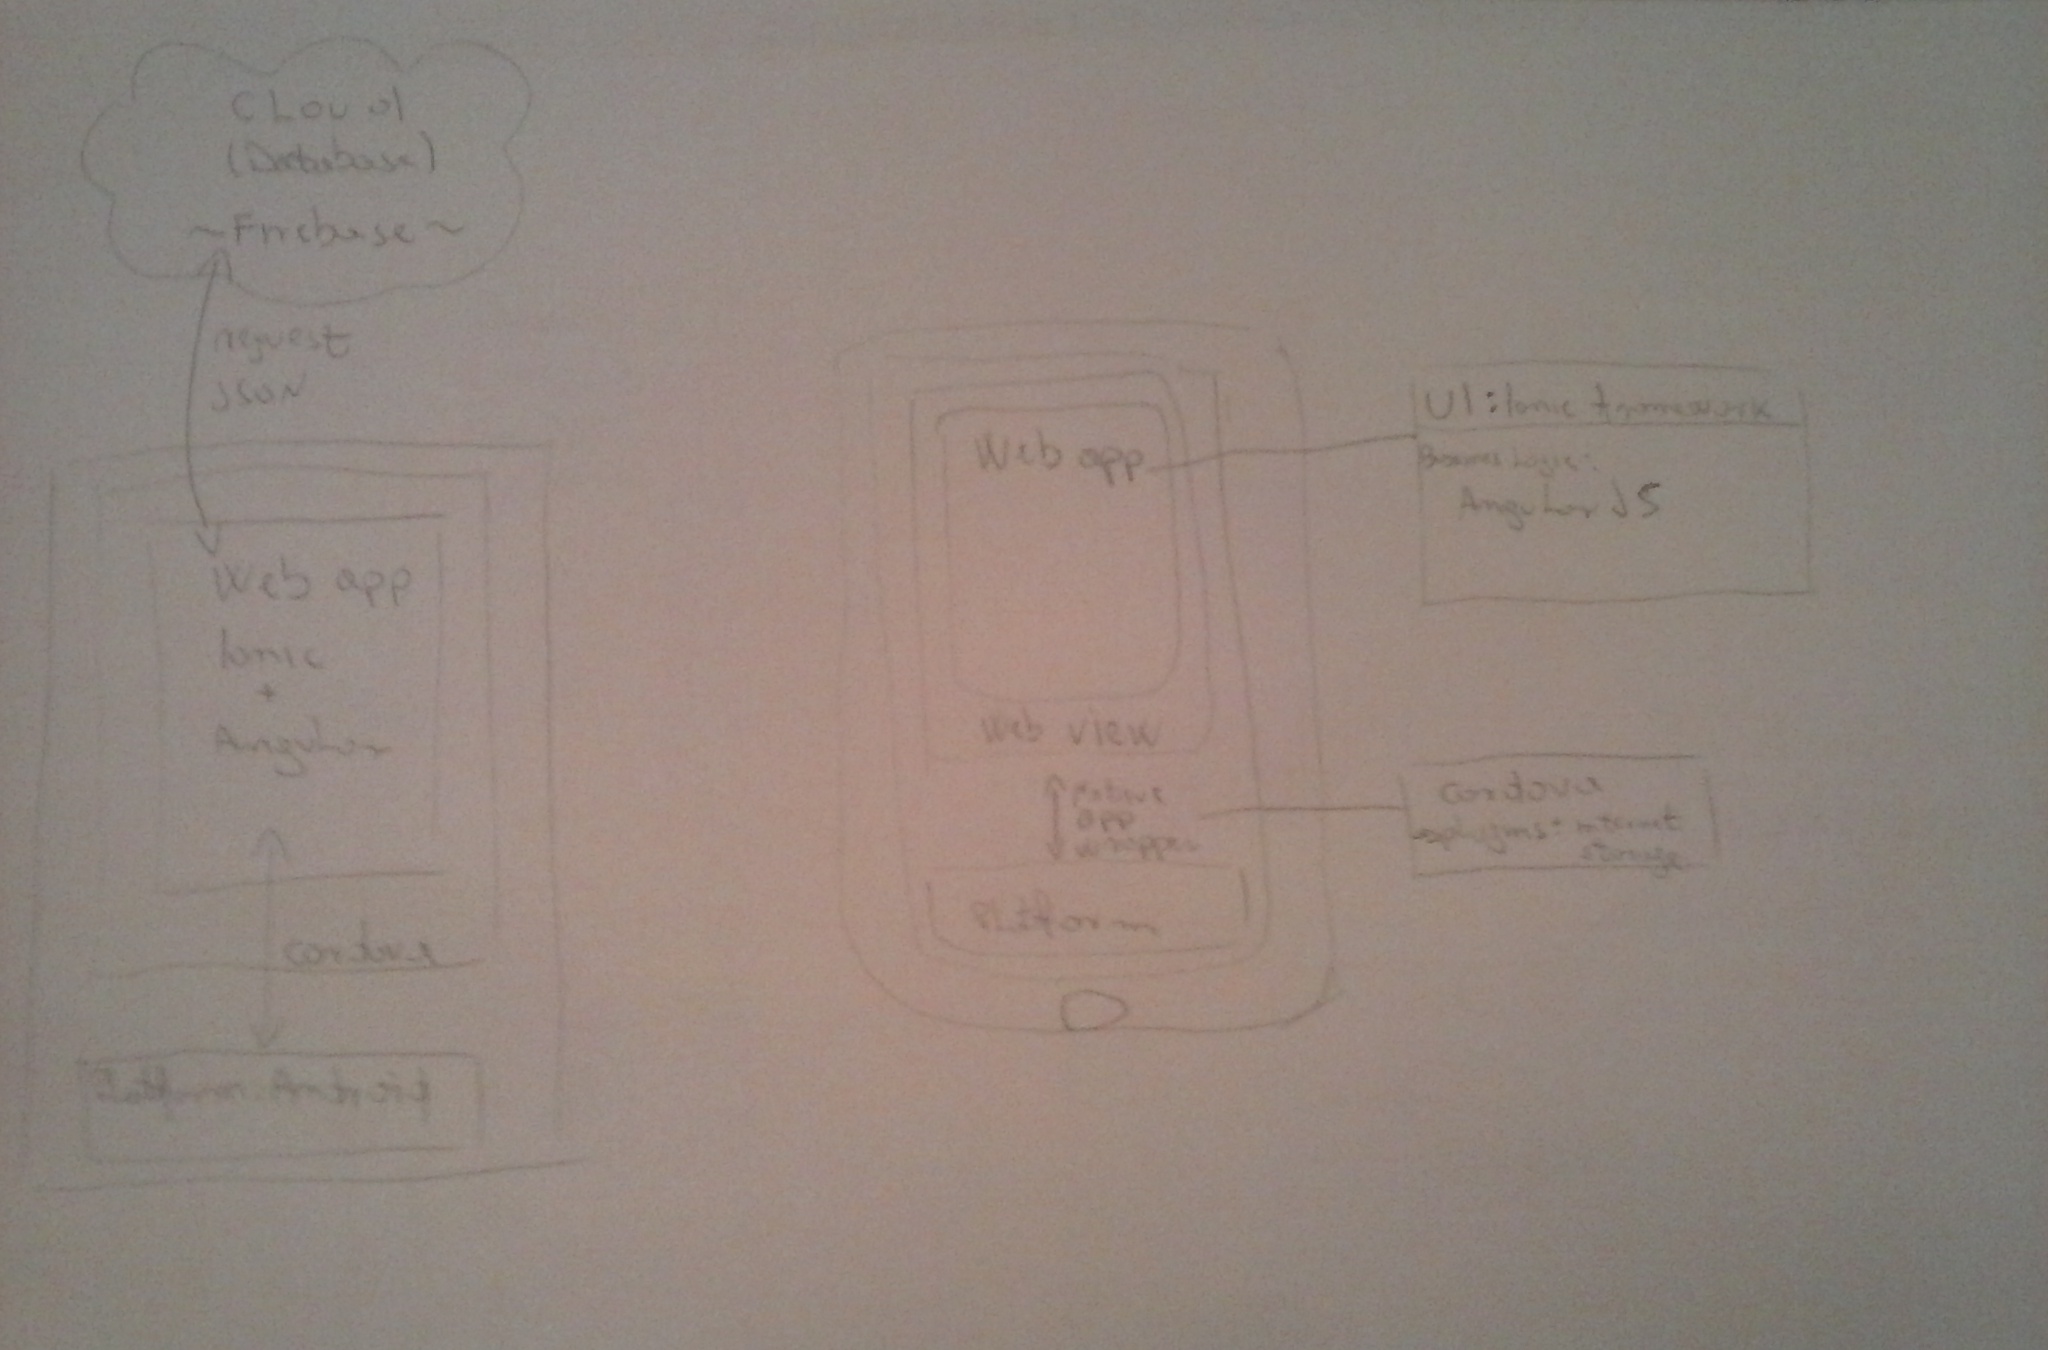 CLoud
(Database)
~Firebase~
request
JSON
Web app
Ionic
+
Angular
cordova
Platform: Android
Web app
Web view
native
app
wrapper
Platform
UI: Ionic framework
Business Logic:
Angular JS
cordova
→plugins: internet
storage